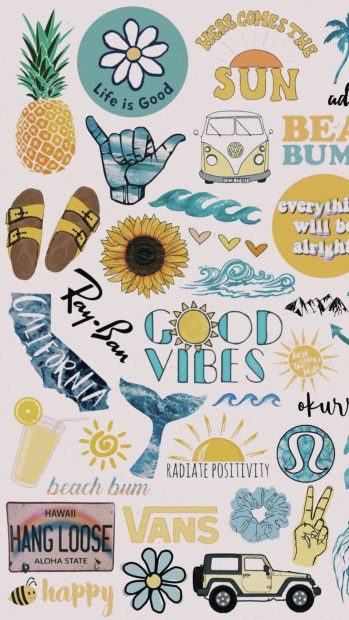 Life is Good
HERE COMES THE
SUN
ad
BEA
BUM
everythin
will be
alright
Ray-Ban
CALIFORNIA
GOOD
VIBES
okurr
RADIATE POSITIVITY
beach bum
HAWAII
HANG LOOSE
ALOHA STATE
VANS
happy